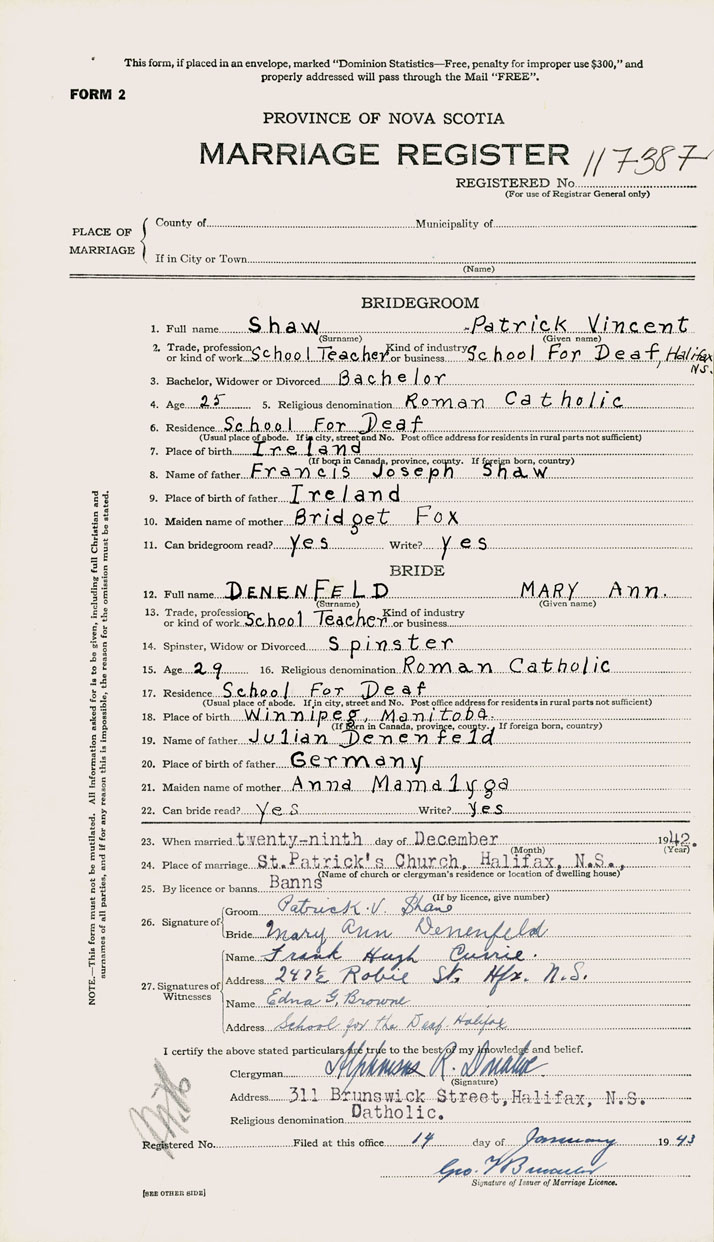 This form, if placed in an envelope, marked "Dominion Statistics—Free, penalty for improper use $300," and
properly addressed will pass through the Mail "FREE".
FORM 2
PROVINCE OF NOVA SCOTIA
MARRIAGE REGISTER 117387
REGISTERED No.
(For use of Registrar General only)
PLACE OF MARRIAGE
County of Municipality of
If in City or Town
(Name)
BRIDEGROOM
1. Full name Shaw Patrick Vincent
(Surname) (Given name)
2. Trade, profession or kind of work School Teacher Kind of industry or business School For Deaf, Halifax N.S.
3. Bachelor, Widower or Divorced Bachelor
4. Age 25 5. Religious denomination Roman Catholic
6. Residence School For Deaf
(Usual place of abode. If in city, street and No. Post office address for residents in rural parts not sufficient)
7. Place of birth Ireland
(If born in Canada, province, county. If foreign born, country)
8. Name of father Francis Joseph Shaw
9. Place of birth of father Ireland
10. Maiden name of mother Bridget Fox
11. Can bridegroom read? yes Write? yes
BRIDE
12. Full name DENENFELD MARY Ann.
(Surname) (Given name)
13. Trade, profession or kind of work School Teacher Kind of industry or business
14. Spinster, Widow or Divorced Spinster
15. Age 29 16. Religious denomination Roman Catholic
17. Residence School For Deaf
(Usual place of abode. If in city, street and No. Post office address for residents in rural parts not sufficient)
18. Place of birth Winnipeg, Manitoba.
(If born in Canada, province, county. If foreign born, country)
19. Name of father Julian Denenfeld
20. Place of birth of father Germany
21. Maiden name of mother Anna Mamalyga
22. Can bride read? yes Write? yes
23. When married twenty-ninth day of December 1942.
(Month) (Year)
24. Place of marriage St.Patrick's Church, Halifax, N.S.,
(Name of church or clergyman's residence or location of dwelling house)
25. By licence or banns Banns
(If by licence, give number)
26. Signature of
Groom Patrick. V. Shaw
Bride Mary Ann Denenfeld
27. Signatures of Witnesses
Name Frank Hugh Currie.
Address 247½ Robie St. Hfx. N.S.
Name Edna G. Browne
Address School for the Deaf Halifax
I certify the above stated particulars are true to the best of my knowledge and belief.
Clergyman Alphonsus R. Donahoe
(Signature)
Address 311 Brunswick Street, Halifax, N.S.
Religious denomination Catholic.
Registered No. Filed at this office 14 day of January 1943
Geo.
Signature of Issuer of Marriage Licence.
[SEE OTHER SIDE]
NOTE.—This form must not be mutilated. All information asked for is to be given, including full Christian and
surnames of all parties, and if for any reason this is impossible, the reason for the omission must be stated.